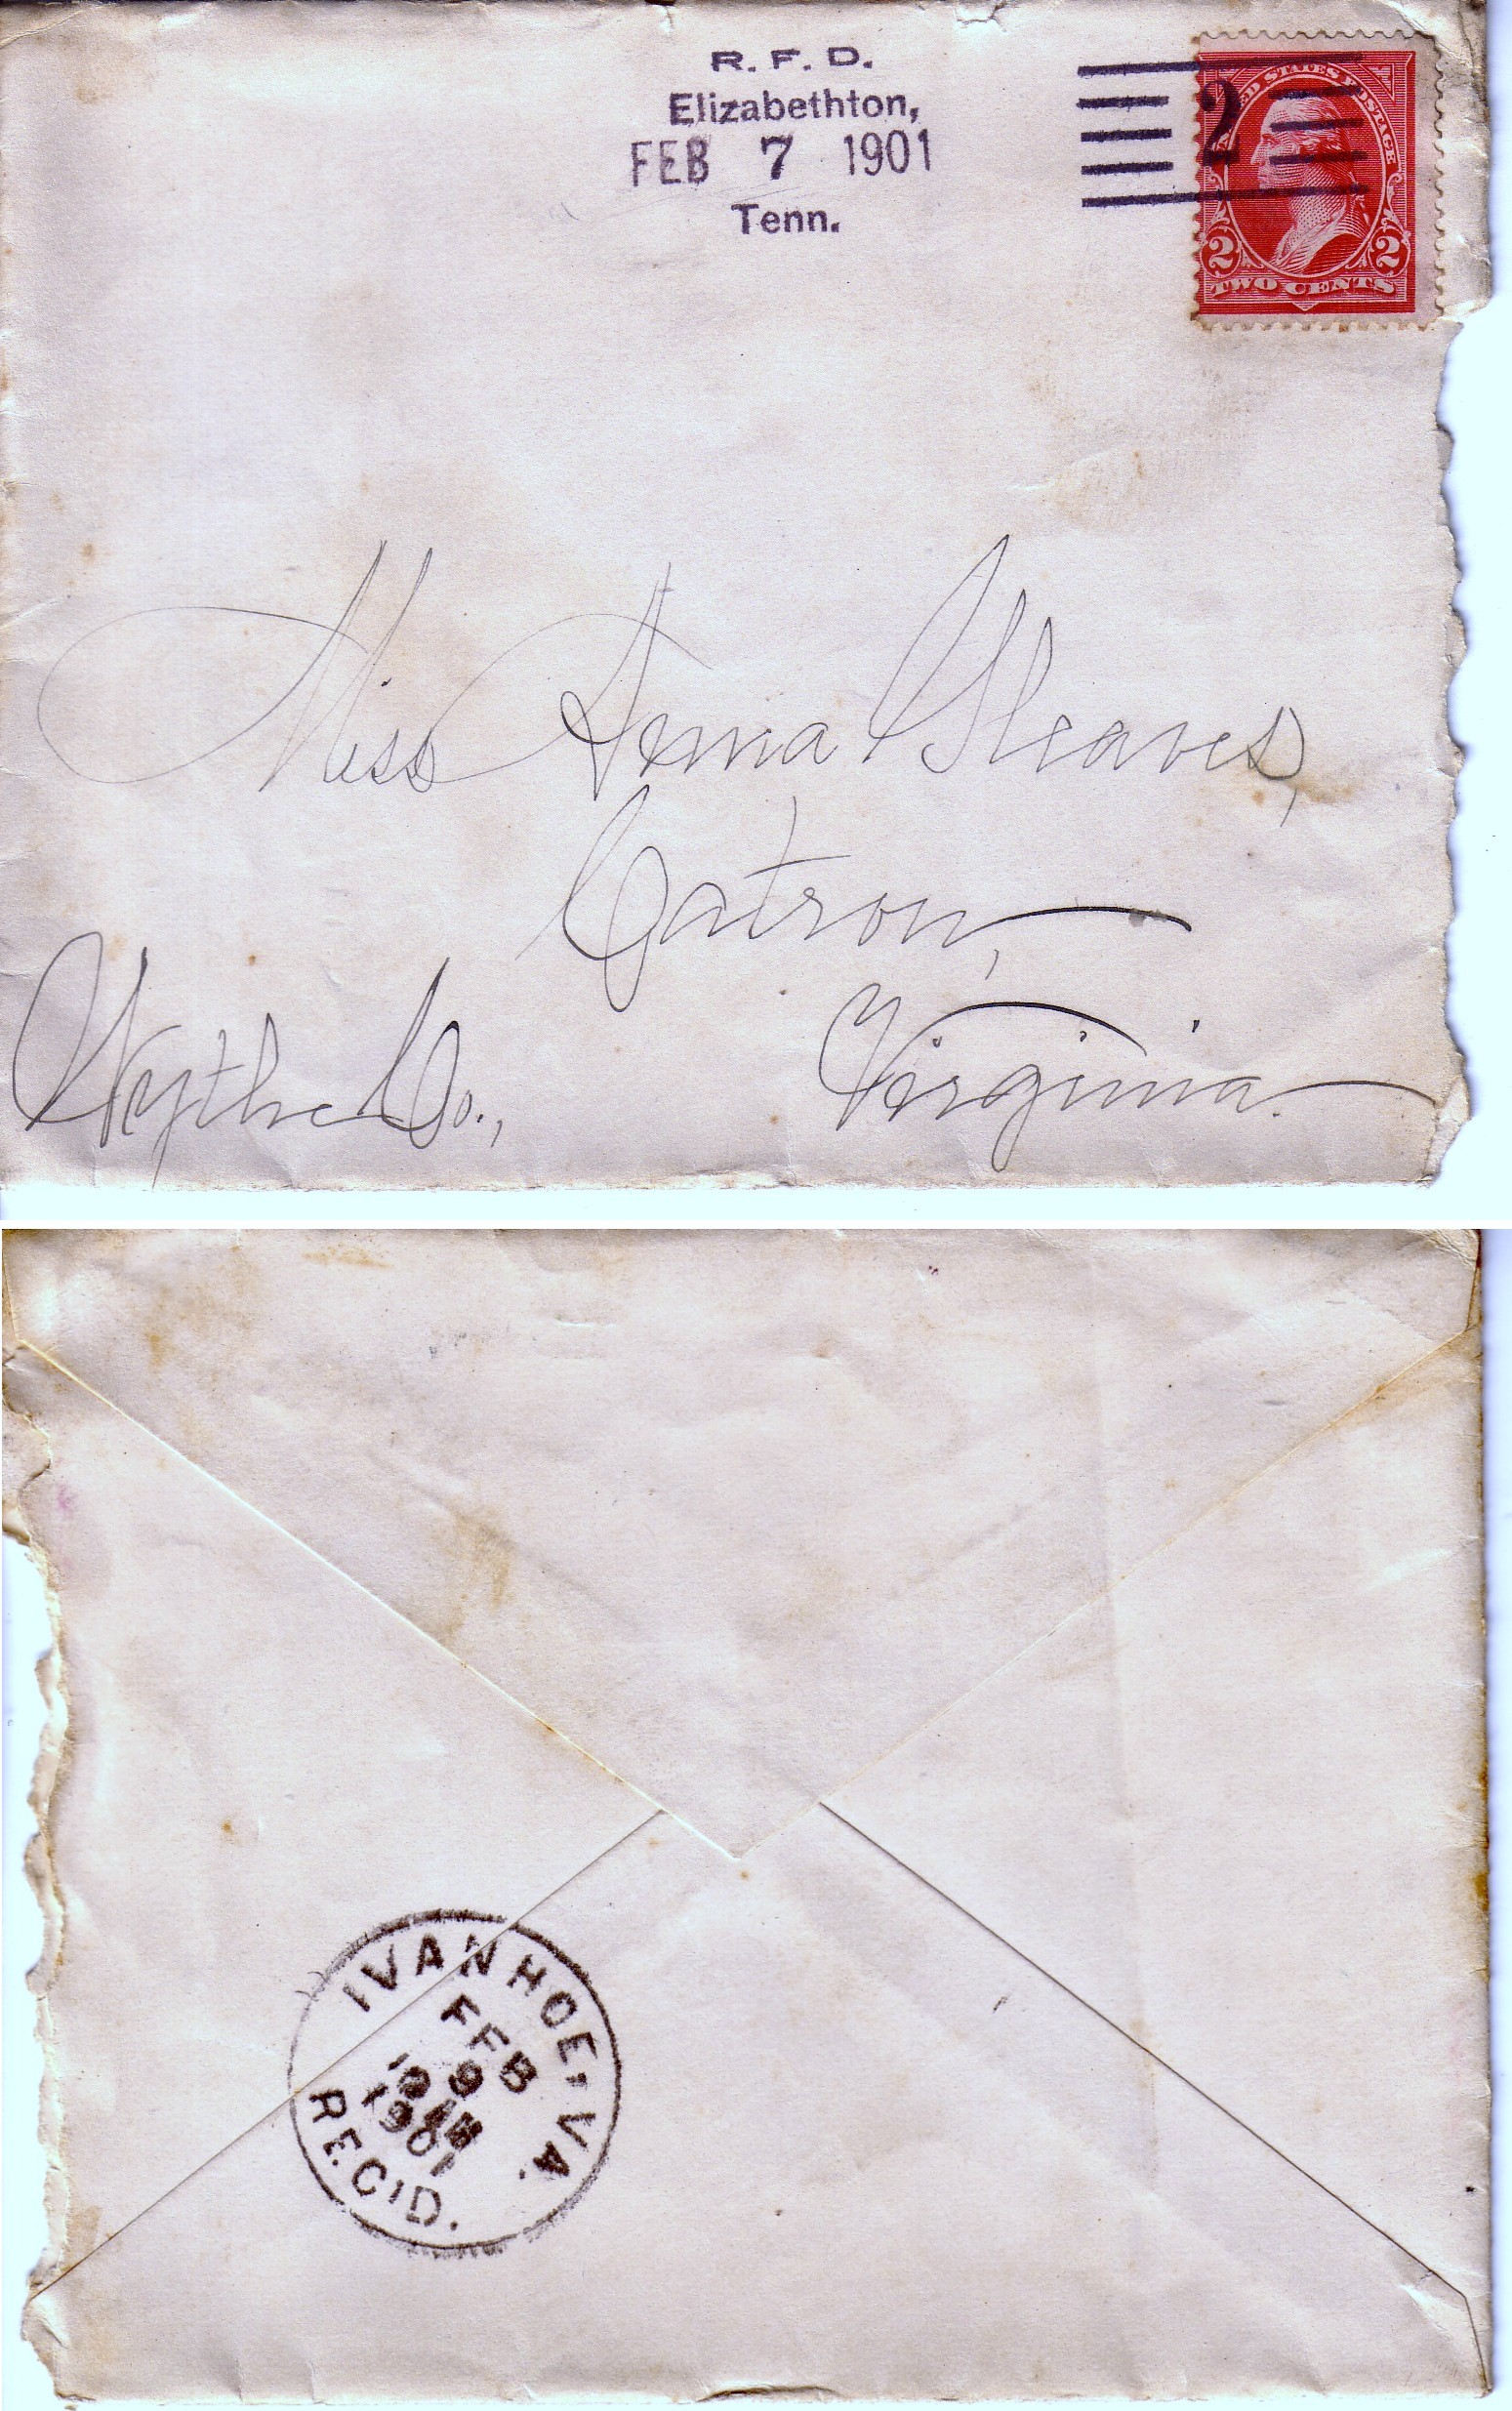 R. F. D.
Elizabethton,
FEB 7 1901
Tenn.
2
UNITED STATES POSTAGE
2 2
TWO CENTS
Miss Gleaves,
Catron,
Wythe Co., Virginia.
IVANHOE, VA.
FEB
9
1901
REC'D.